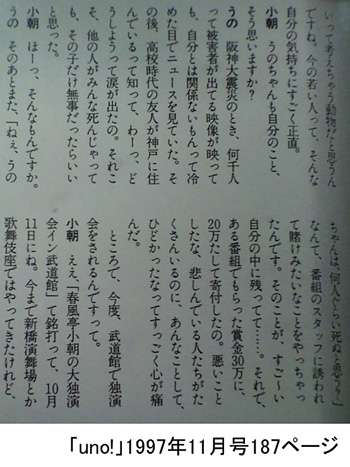 いって考えちゃう動物だと思うん
ですね。今の若い人って、そんな
自分の気持ちにすごく正直。
小朝　うのちゃんも自分のこと、
そう思いますか？
うの　阪神大震災のとき、何千人
って被害者が出てる映像が映って
も、自分とは関係ないもんって冷
めた目でニュースを見ていた。そ
の後、高校時代の友人が神戸に住
んでいるって知って、わーっ、ど
うしようって涙が出たの。それこ
そ、他の人がみんな死んじゃって
も、その子だけ無事だったらいい
と思った。
小朝　ほーっ、そんなもんですか。
うの　そのあとまた、「ねぇ、うの
ちゃんは、何人くらい死ぬと思う？」
なんて、番組のスタッフに誘われ
て賭けみたいなことをやっちゃっ
たんです。そのことが、すご〜い
自分の中に残ってて……。それで、
ある番組でもらった賞金30万に、
20万たして寄付したの。悪いこと
したな、悲しんでいる人たちがた
くさんいるのに、あんなことして、
ひどかったなってすっごく心が痛
んだ。
　ところで、今度、武道館で独演
会をされるんですって。
小朝　ええ、「春風亭小朝の大独演
会イン武道館」て銘打って、10月
11日にね。今まで新橋演舞場とか
歌舞伎座ではやってきたけれど、
「uno!」1997年11月号187ページ